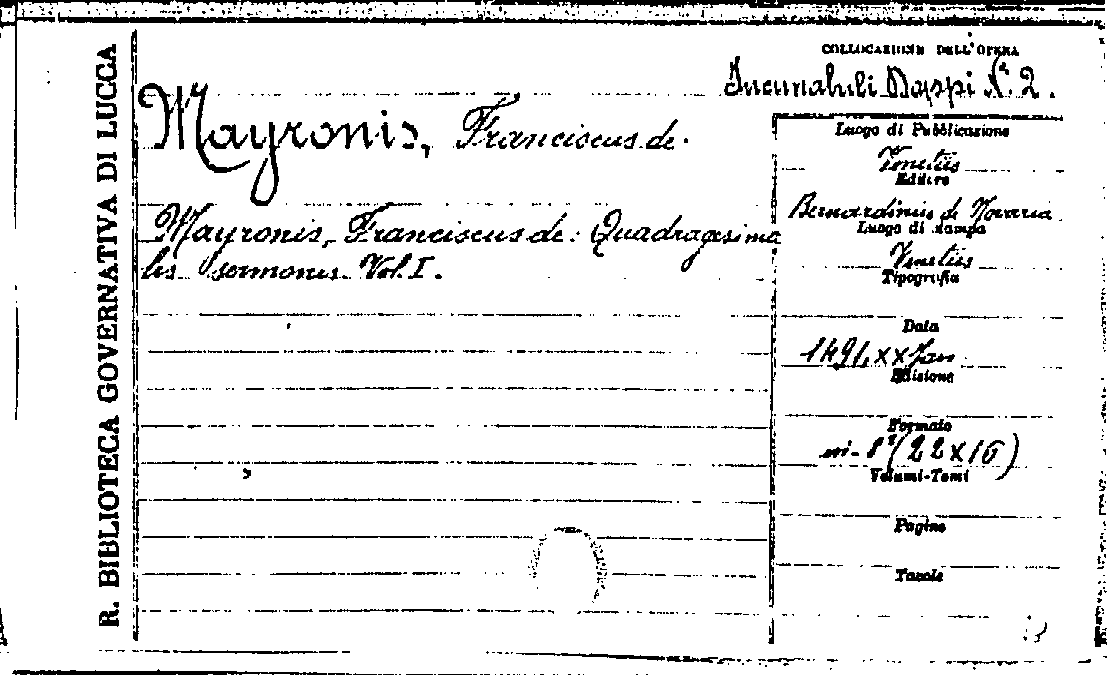 R. BIBLIOTECA GOVERNATIVA DI LUCCA
COLLOCAZIONE DELL'OPERA
Incunabuli N.º 2.
Mayronis, Franciscus de.
Mayronis, Franciscus de: Quadragesima
les sermones. Vol. I.
Luogo di Pubblicazione
Venetiis
Editore
Bernardinus de Novaria
Luogo di stampa
Venetiis
Tipografia
Data
1491, XX Jan
Edizione
Formato
in-8º (22x16)
Volumi-Tomi
Pagine
Tavole